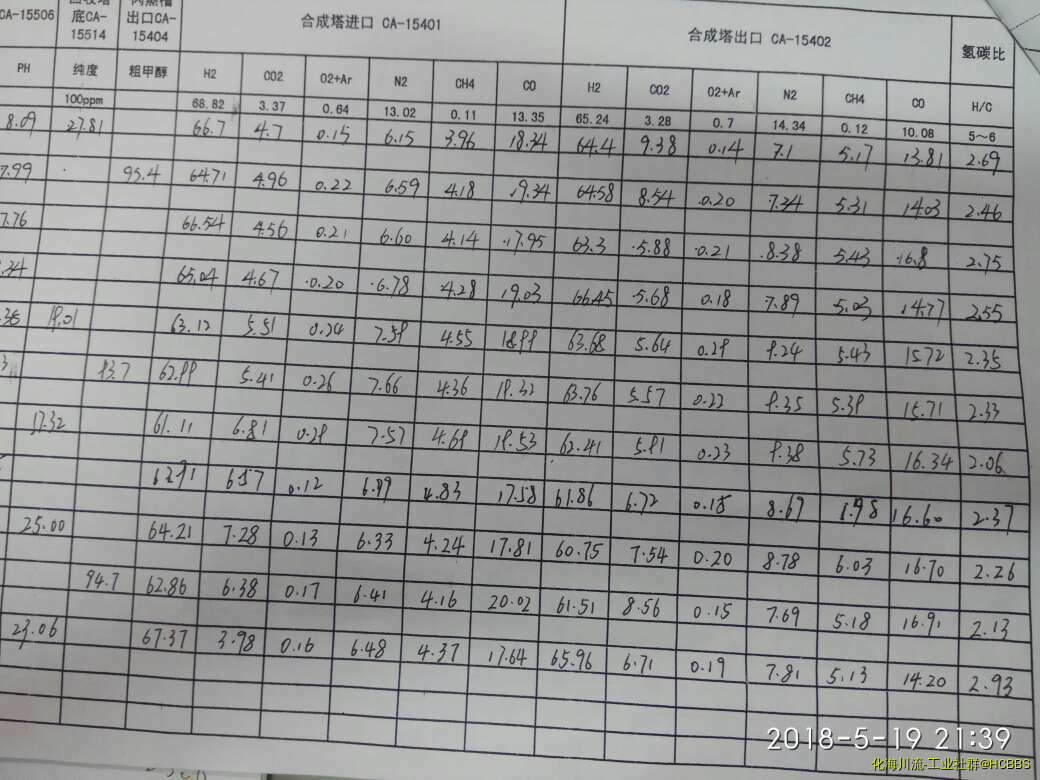 CA-15506 底CA-15514 出口CA-15404 合成塔进口 CA-15401 合成塔出口 CA-15402 氢碳比
PH 纯度 粗甲醇 H2 CO2 O2+Ar N2 CH4 CO H2 CO2 O2+Ar N2 CH4 CO H/C
100ppm 68.82 3.37 0.64 13.02 0.11 13.35 65.24 3.28 0.7 14.34 0.12 10.08 5~6
8.09 27.81 66.7 4.7 0.15 6.15 3.96 18.34 64.4 9.38 0.14 7.1 5.17 13.81 2.69
7.99 95.4 64.71 4.96 0.22 6.59 4.18 19.34 64.58 8.54 0.20 7.34 5.31 14.03 2.46
7.76 66.54 4.56 0.21 6.60 4.14 17.95 63.3 5.88 0.21 8.38 5.43 16.8 2.75
65.04 4.67 0.20 6.78 4.28 19.03 66.45 5.68 0.18 7.89 5.03 14.77 2.55
63.12 5.51 0.24 7.59 4.55 18.99 63.68 5.64 0.29 9.24 5.43 15.72 2.35
93.7 62.99 5.41 0.26 7.66 4.36 19.32 63.76 5.57 0.23 9.35 5.39 15.71 2.33
17.32 61.11 6.81 0.29 7.57 4.69 19.53 62.41 5.91 0.23 9.38 5.73 16.34 2.06
6.57 0.12 6.99 4.83 17.58 61.86 6.72 0.18 8.67 16.60 2.37
25.00 64.21 7.28 0.13 6.33 4.24 17.81 60.75 7.54 0.20 8.78 6.03 16.70 2.26
94.7 62.86 6.38 0.17 6.41 4.16 20.02 61.51 8.56 0.15 7.69 5.18 16.91 2.13
23.06 67.37 3.98 0.16 6.48 4.37 17.64 65.96 6.71 0.19 7.81 5.13 14.20 2.93
2018-5-19 21:39
化海川流-工业社群@HCBBS